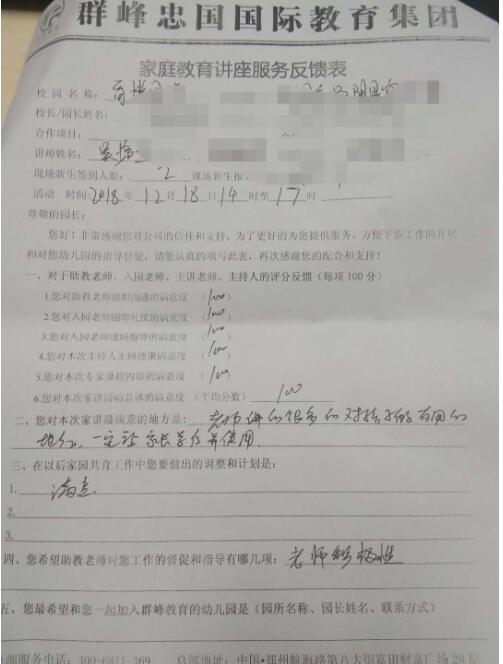 群峰忠国国际教育集团
家庭教育讲座服务反馈表
校园名称：
校长/园长姓名：
合作项目：
讲师姓名：
现场新生签到人数： 2 现场新生报
活动 时间:2018年12月18日14时至17时
尊敬的园长：
您好！非常感谢您对公司的信任和支持，为了更好的为您提供服务，方便下步工作的开展
和对您幼儿园的指导督促，请您认真的填写此表，再次感谢您的配合和支持！
一、对于助教老师、入园老师、主讲老师、主持人的评分反馈（每项100分）
1.您对助教老师前期沟通的满意度 （100
2.您对入园老师国学礼仪的满意度 （100
3.您对入园老师现场督导的满意度 （100
4.您对本次主持人主持效果满意度 （100
5.您对本次专家课程内容的满意度 （100
6.您对本次家讲活动总体的满意度 （平均分数） 100
二、您对本次家讲最满意的地方是: 老师讲的很多的对孩子的有用的
地方，一定让家长学习并使用.
三、在以后家园共育工作中您要做出的调整和计划是：
1. 满意
2.
3.
四、您希望助教老师对您工作的督促和指导有哪几项: 老师积极性
五、您最希望和您一起加入群峰教育的幼儿园是（园所名称、园长姓名、联系方式）
部服务电话：400-6811-369 总部地址：中国·郑州航海路第八大街富田财富广场28层